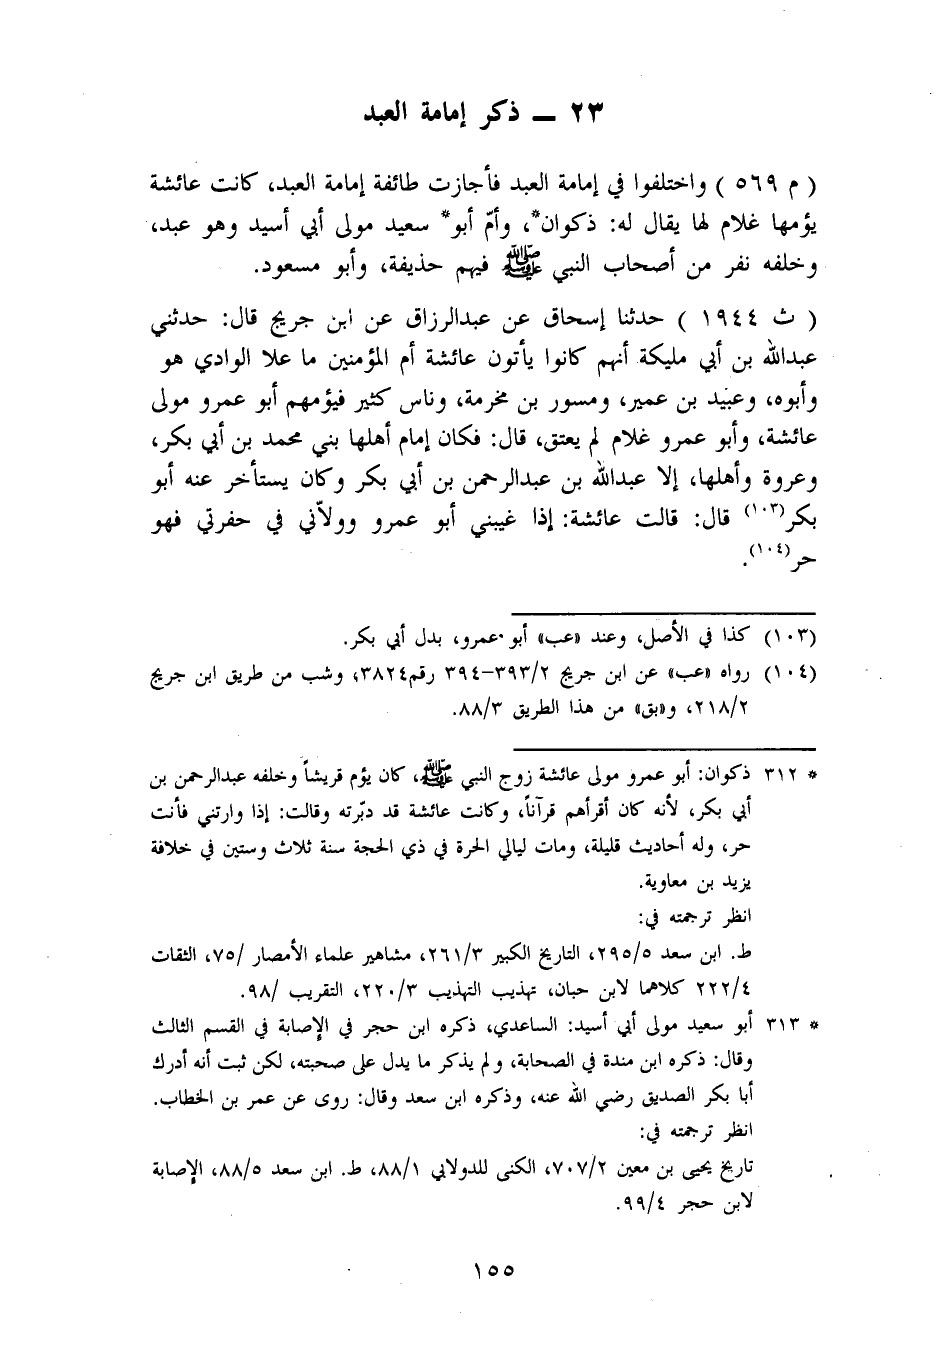 ٢٣ ــ ذكر إمامة العبد
( م ٥٦٩ ) واختلفوا في إمامة العبد فأجازت طائفة إمامة العبد، كانت عائشة
يؤمها غلام لها يقال له: ذكوان*، وأمّ أبو* سعيد مولى أبي أسيد وهو عبد،
وخلفه نفر من أصحاب النبي ﷺ فيهم حذيفة، وأبو مسعود.
( ث ١٩٤٤ ) حدثنا إسحاق عن عبدالرزاق عن ابن جريج قال: حدثني
عبدالله بن أبي مليكة أنهم كانوا يأتون عائشة أم المؤمنين ما علا الوادي هو
وأبوه، وعبيد بن عمير، ومسور بن مخرمة، وناس كثير فيؤمهم أبو عمرو مولى
عائشة، وأبو عمرو غلام لم يعتق، قال: فكان إمام أهلها بني محمد بن أبي بكر،
وعروة وأهلها، إلا عبدالله بن عبدالرحمن بن أبي بكر وكان يستأخر عنه أبو
بكر(١٠٣) قال: قالت عائشة: إذا غيبني أبو عمرو وولاّني في حفرتي فهو
حر(١٠٤).
(١٠٣) كذا في الأصل، وعند «عب» أبو عمرو، بدل أبي بكر.
(١٠٤) رواه «عب» عن ابن جريج ٣٩٣/٢–٣٩٤ رقم٣٨٢٤، وشب من طريق ابن جريج
٢١٨/٢، و«بق» من هذا الطريق ٨٨/٣.
* ٣١٢ ذكوان: أبو عمرو مولى عائشة زوج النبي ﷺ، كان يؤم قريشاً وخلفه عبدالرحمن بن
أبي بكر، لأنه كان أقرأهم قرآناً، وكانت عائشة قد دبّرته وقالت: إذا وارتني فأنت
حر، وله أحاديث قليلة، ومات ليالي الحرة في ذي الحجة سنة ثلاث وستين في خلافة
يزيد بن معاوية.
انظر ترجمته في:
ط. ابن سعد ٢٩٥/٥، التاريخ الكبير ٢٦١/٣، مشاهير علماء الأمصار /٧٥، الثقات
٢٢٢/٤ كلاهما لابن حبان، تهذيب التهذيب ٢٢٠/٣، التقريب /٩٨.
* ٣١٣ أبو سعيد مولى أبي أسيد: الساعدي، ذكره ابن حجر في الإصابة في القسم الثالث
وقال: ذكره ابن مندة في الصحابة، ولم يذكر ما يدل على صحبته، لكن ثبت أنه أدرك
أبا بكر الصديق رضي الله عنه، وذكره ابن سعد وقال: روى عن عمر بن الخطاب.
انظر ترجمته في:
تاريخ يحيى بن معين ٧٠٧/٢، الكنى للدولابي ٨٨/١، ط. ابن سعد ٨٨/٥، الإصابة
لابن حجر ٩٩/٤.
١٥٥